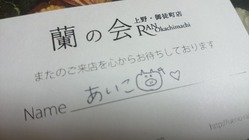 上野・御徒町店
蘭の会 RAN Okachimachi
またのご来店を心からお待ちしております
Name あいこ